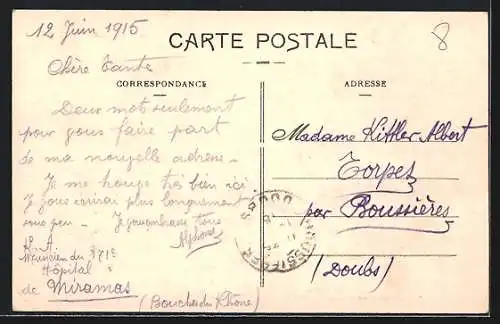 12 Juin 1915
8
CARTE POSTALE
CORRESPONDANCE
ADRESSE
Chère Tante
Deux mot seulement
pour vous faire part
de ma nouvelle adresse -
Je me trouve très bien ici
Je vous écrirai plus longuement
sous peu - Je vous embrasse tous
Alphonse
K. A.
Musicien du 371e
Hôpital
de Miramas
(Bouches du Rhône)
Madame Kittler Albert
Torpes
par Boussières
(Doubs)